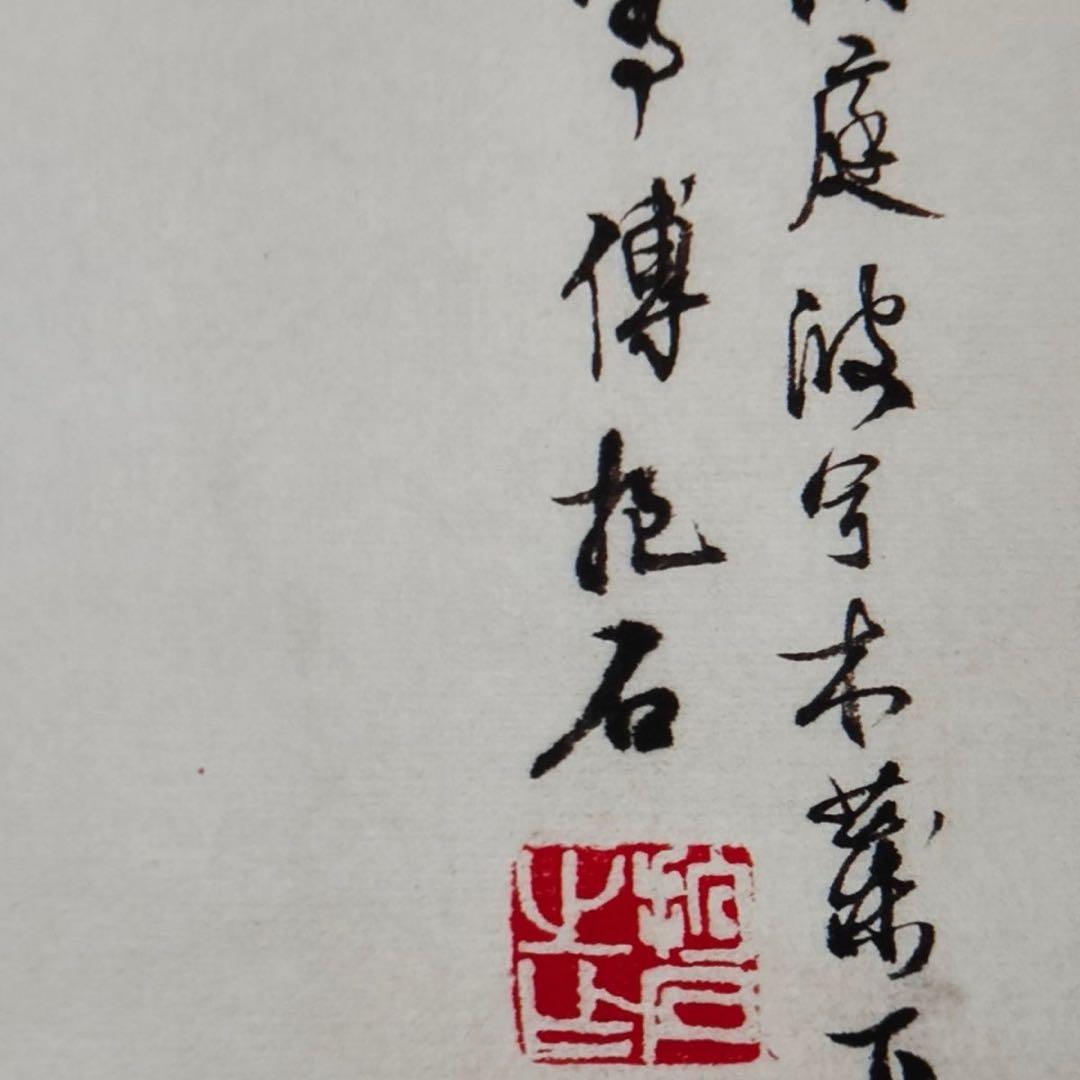 庭波兮木葉下
傅抱石
抱石之